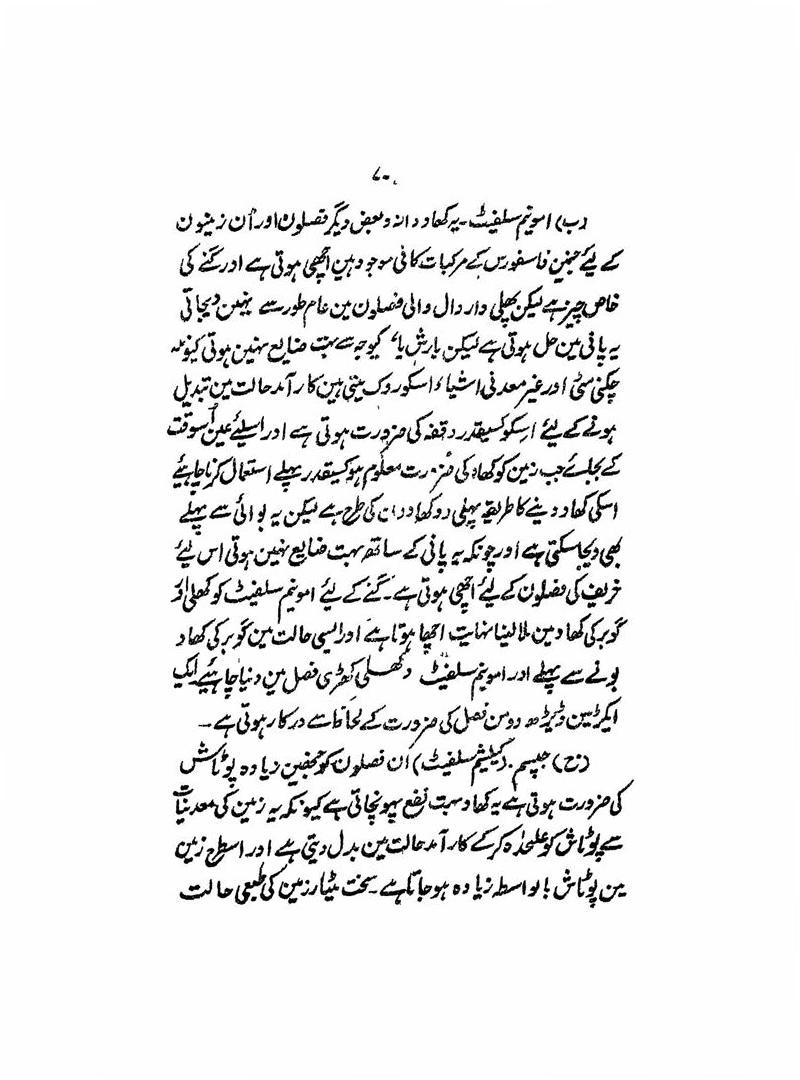 ۷۰
(ب) امونیم سلفیٹ۔ یہ کھاد دانہ و بعض دیگر فصلون اور اُن زمینون
کے لیئے جنمین فاسفورس کے مرکبات کافی موجود ہین اچھی ہوتی ہے اور گنے کی
خاص چیز ہے لیکن پھلی دار دال والی فصلون مین عام طور سے نہین دیجاتی
یہ پانی مین حل ہوتی ہے لیکن بارش کیوجہ سے بہت ضایع نہین ہوتی کیونکہ
چکنی مٹی اور غیر معدنی اشیاء اسکو روک لیتی ہین کار آمد حالت مین تبدیل
ہونے کے لیئے اسکو کسیقدر وقفہ کی ضرورت ہوتی ہے اور اسلیئے عین اُسوقت
کے بجائے جب زمین کو کھاد کی ضرورت معلوم ہو کسیقدر پہلے استعمال کرنا چاہیئے
اسکی کھاد دینے کا طریقہ پہلی دو کھادون کی طرح ہے لیکن یہ بوائی سے پہلے
بھی دیجا سکتی ہے اور چونکہ یہ پانی کے ساتھ بہت ضایع نہین ہوتی اس لیئے
خریف کی فصلون کے لیئے اچھی ہوتی ہے۔ گنے کے لیئے امونیم سلفیٹ کو کھلی اور
گوبر کی کھاد مین ملا لینا نہایت اچھا ہوتا ہے اور ایسی حالت مین گوبر کی کھاد
بونے سے پہلے اور امونیم سلفیٹ و کھلی کھڑی فصل مین دینا چاہیئے ایک
ایکڑ مین ڈیڑھ دو من فصل کی ضرورت کے لحاظ سے درکار ہوتی ہے۔
(ج) جپسم۔ (کیلشیم سلفیٹ) اُن فصلون کو جنھین زیادہ پوٹاش
کی ضرورت ہوتی ہے یہ کھاد بہت نفع پہونچاتی ہے کیونکہ یہ زمین کی معدنیات
سے پوٹاش کو علٰحدہ کر کے کار آمد حالت مین بدل دیتی ہے اور اسطرح زمین
مین پوٹاش بالواسطہ زیادہ ہو جاتا ہے۔ سخت مٹیار زمین کی طبعی حالت